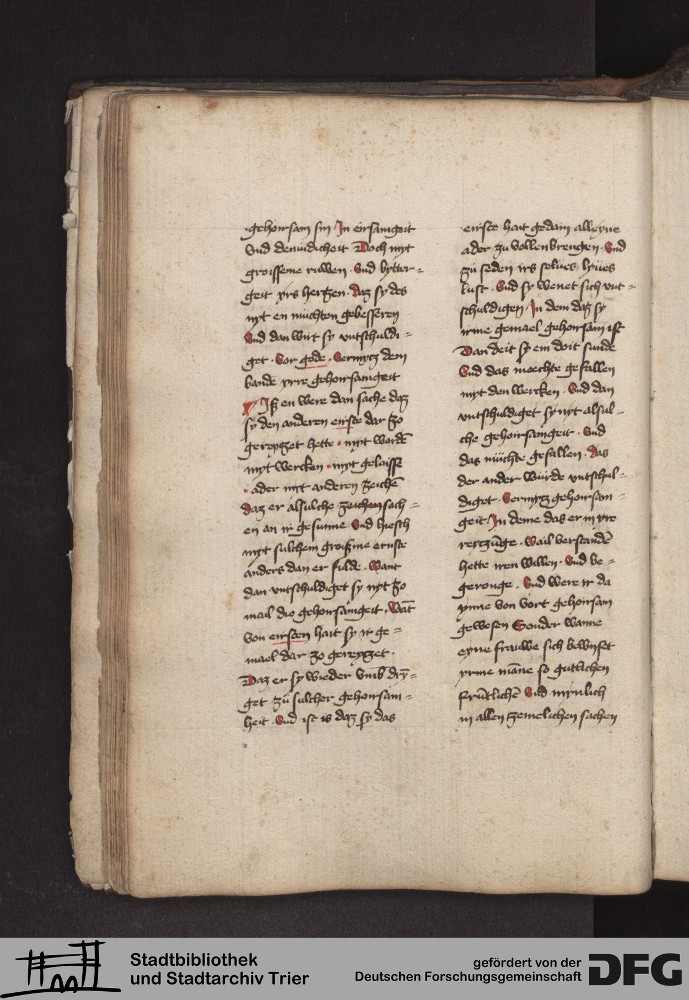 gehoirsam sin · In eirsamgeit
Vnd demudicheit Doch myt
groisseme ruwen · Vnd bytter=
geit yrs hertzen · daz sy des
nyt en muchten gebesseren
Vnd dan wirt sy vntschuldi=
get · Vor gode · Vermytz dem
bande yrre gehoirsamgeit
Iß en were dan sache daz
sy den anderen eirste dar zo
gereytzet hette · myt wordē
myt wercken · myt gelaisse
· ader myt anderen zeichē
daz er alsulche zeichen sach=
en an ir gesunne · Vnd hiesch
myt sulchem groißme ernste
anders dan er sulde · Want
dan vntschuldiget sy nyt zo
mail die gehoirsamgeit · Wāt
von eirsten hait sy ir ge=
mael dar zo gereytzet ·
Daz er sy wieder vmb drī=
get zu sulcher gehoirsam=
heit · Vnd ist is daz sy das
eirste hait gedain alleyne
ader zu vollenbrengen · Vnd
zu seden irs selues lyues
lust · Vnd sy wenet sich vnt=
schuldigen · In dem daz sy
irme gemael gehoirsam ist
Dan deit sy ein doit sunde
Vnd das moechte gefallen
myt den wercken · Vnd dan
vntschuldiget sy nyt alsul=
che gehoirsamgeit · Vnd
das muchte gefallen · das
der ander wurde vntschul=
diget · Vermytz gehoirsam=
geit / In deme das er in yre
reytzunge · Wail verstandē
hette iren willen · Vnd be=
geronge · Vnd were ir da
ynne von vort gehoirsam
gewesen Sonder wanne
eyne frauwe sich bewyset
yrme māne so gutlichen
fruntlichē Vnd mynlich
in allen tzemelichen sachen
Stadtbibliothek
und Stadtarchiv Trier
gefördert von der
Deutschen Forschungsgemeinschaft
DFG